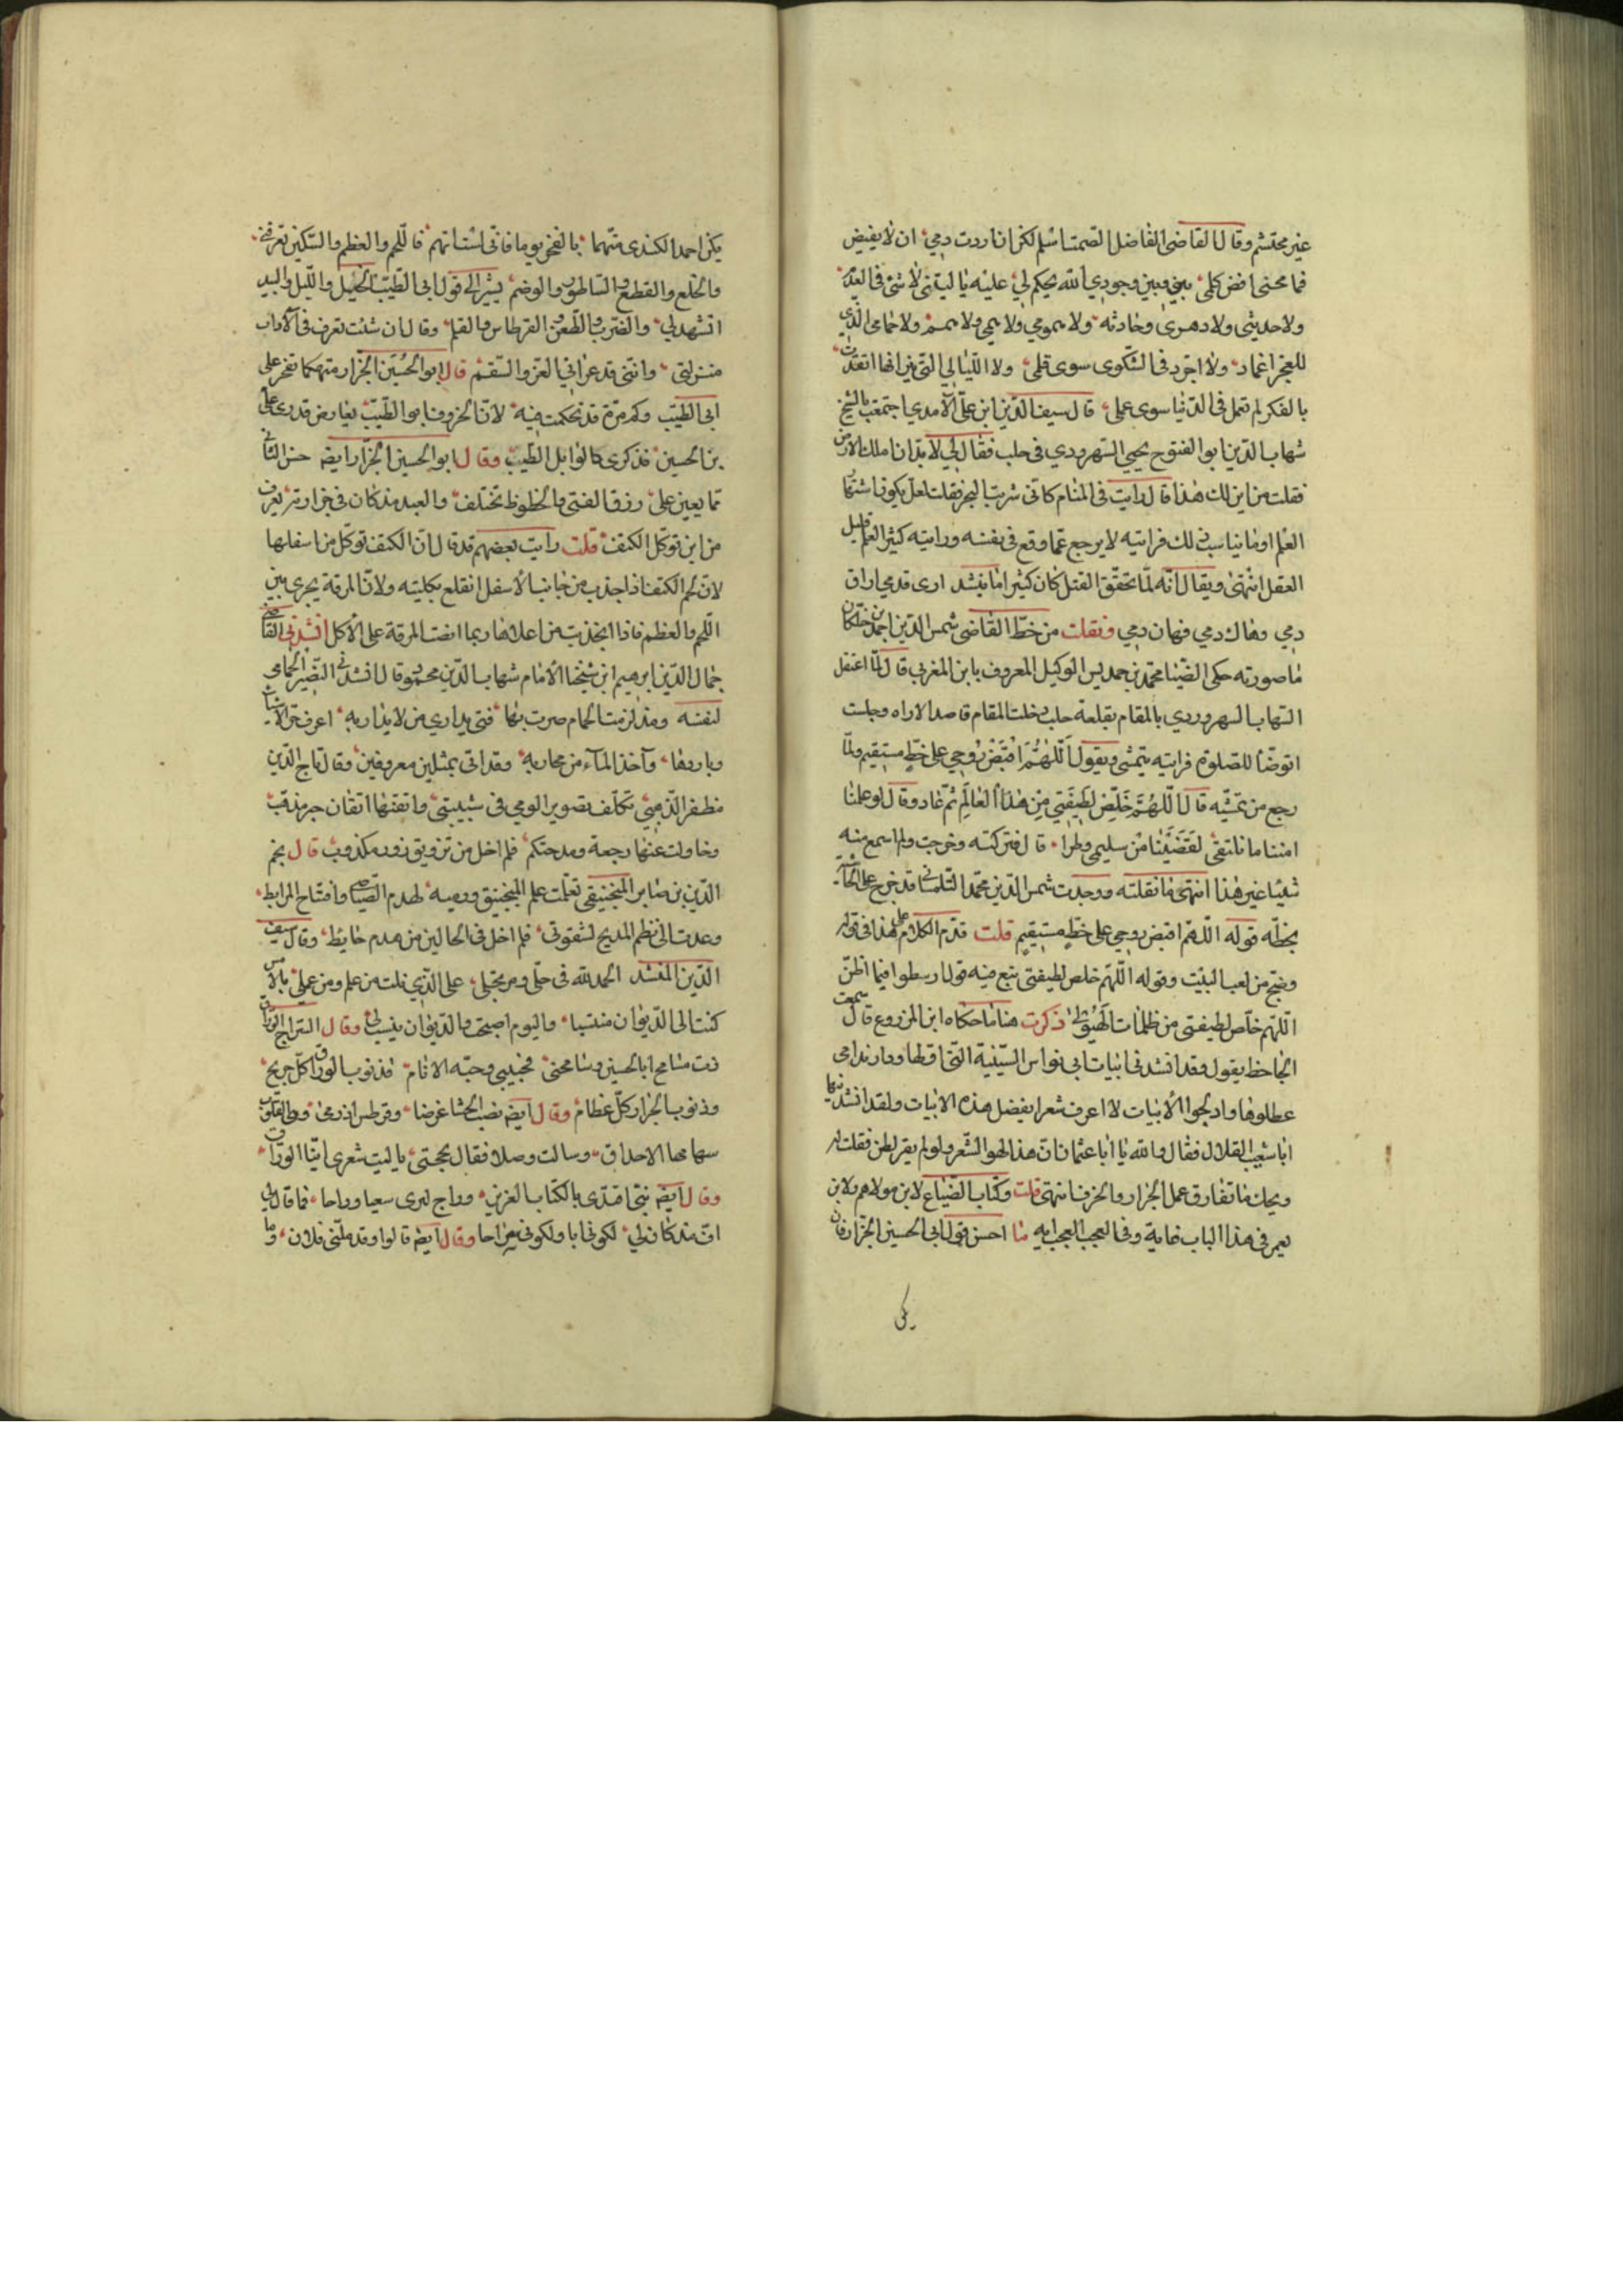 غير محتشم وقال القاضي الفاضل الصمت اسلم لكن ان اردت دمي ان لا يفيض
فما محنى افض كلمي بيني وبين وجودي الله يحكم لي عليه يا ليتني لا شئ في العدم
ولا حديثى ولا دهرى وحادثه ولا يمومي ولا يمي ولا يمم ولا حمامى الذي
للعجز اغماد ولا اجرد في الشكوى سوى قلمي ولا الليالي التي نيرانها اتقدت
بالفكر لم تعمل في الدنيا سوى عملي قال سيف الدين ابن علي الآمدي اجتمعت بالشيخ
شهاب الدين ابو الفتوح يحيى السهروردي في حلب فقال لي لا بد ان املك الارض
فقلت من اين لك هذا قال رايت في المنام كاني شربت البحر فقلت لعل يكون اشتهار
العلم او ما يناسب ذلك فرايته لا يرجع عما وقع في نفسه ورايته كثير العلم قليل
العقل انتهى ويقال انه لما تحقق القتل كان كثيرا ما ينشد ارى قدمي اراق
دمي وهان دمي فهان دمي ونقلت من خط القاضي شمس الدين احمد بن خلكان
ما صورته حكى الضيا محمد بن حمديس الوكيل المعروف بابن المغربي قال لما اعتقل
الشهاب السهروردي بالمقام بقلعة حلب دخلت المقام قاصدا لاراه وجلست
اتوضأ للصلوة فرايته يتمشى ويقول اللهم اقبض روحي على خط مستقيم ولما
رجع من تمشيه قال اللهم خلص لطيفتي من هذا العالم ثم عاد وقال لو علمنا
اننا ما نلتقى لقضينا من سليمى وطرا قال فتركته وخرجت ولم اسمع منه
شيئا غير هذا انتهى ما نقلته ووجدت شمس الدين محمد التلمساني قد خرج على الحاشية
بخطه قوله اللهم اقبض روحي على خط مستقيم قلت قدم الكلام على هذا في قوله
وضج من لعب البيت وقوله اللهم خلص لطيفتي يتبع فيه قول ارسطوا فيما اظن
اللهم خلص لطيفتى من ظلمات الهيولى ذكرت هنا ما حكاه ابن المزروع قال سمعت
الجاحظ يقول وقد انشد في ابيات ابي نواس السينية التي اولها ودار ندامى
عطلوها وادلجوا الابيات لا اعرف شعرا يفضل هذه الابيات ولقد انشدتها
ابا شعيب القلال فقال والله يا ابا عثمان ان هذا لهو الشعر ولو لم يقر لطن فقلت له
ويحك ما تفارق عمل الجرار والخزف انتهى قلت وكتاب الضياع لابن مولاهم ولابن
يعمر في هذا الباب غاية وفي العجب العجب ايه ما احسن قول ابي الحسين الجزار فان
يكن
يكن احمد الكندى متهما بالفخر يوما فاني لست اتهم فاللحم والعظم والسكين تعرفني
والخلع والقطع والساطور والوضم يشير الى قول ابي الطيب الخيل والليل والبيد
تشهد لي والضرب والطعن والقرطاس والقلم وقال ان شئت تعرف في الآداب
منزلتي وانني قد عراني العز والسقم قال ابو الحسين الجزار متهكما تفخر على
ابي الطيب وكم مرة قد تحكمت فيه لان الخروف ابو الطيب يعارض قدرى على
بن الحسين فذكرى كالوابل الطيب وقال ابو الحسين الجزار ايضه حسن التاني
مما يعين على رزق الفتى والحظوظ تختلف والعبد مذ كان في جزارته يعرف
من اين توكل الكتف قلت رايت بعضهم قد قال ان الكتف توكل من اسفلها
لان لحم الكتف اذا جذب من جانب الأسفل انقلع بكليته ولان المرقة يجرى بين
اللحم والعظم فاذا انجذبت من اعلاها ربما انصبت المرقة على الأكل انشدني القاضي
جمال الدين ابرهيم ابن شيخنا الامام شهاب الدين محمود قال انشدني النصير الحمامى
لنفسه ومذ لزمت الحمام صرت بها فتى يدارى من لا يداريه اعرف حر الاشيا
وباردها وآخذ المآء من مجاريه وقد اتى بمثلين معروفين وقال تاج الدين
مظفر الذهبي تكلف تصوير الومي في شبيبتي واتقنتها اتقان حبر مذهب
وحاولت عنها رجعة ومدحتكم فلم اخل من تزويق زور مكذوب قال نجم
الدين بن صابر المنجنيقي تعلمت علم المنجنيق ورميه لهدم الصياصى وافتتاح المرابط
وعدت الى نظم المديح لشقوتي فلم اخل في الحالين من هدم حايط وقال سيف
الدين المشد الحمد لله في حلي ومرتحلي على الذي نلت من علم ومن عملي بالأمس
كنت الى الديوان منتسبا واليوم اصبحت والديوان ينسب لي وقال السراج الوراق
رب سامح ابا الحسين وسامحني فحبيبي وحبه الاثام فذنوب الوراق كل جريح
وذنوب الجزار كل عظام وقال ايضه نصب الحشا غرضا وقرطس اذ رمى وط القلوب
سهامها الاحداق وسالت وصلا فقال بحجتى يا ليت شعرى اينا الوراق
وقال ايضه بنيّ اقتدى بالكتاب العزيز وراح لبرى سعيا وراحا فما قال لي
اف مذ كان لي لكوني ابا ولكوني سراحا وقال ايضه قالوا وقد ملني فلان وما